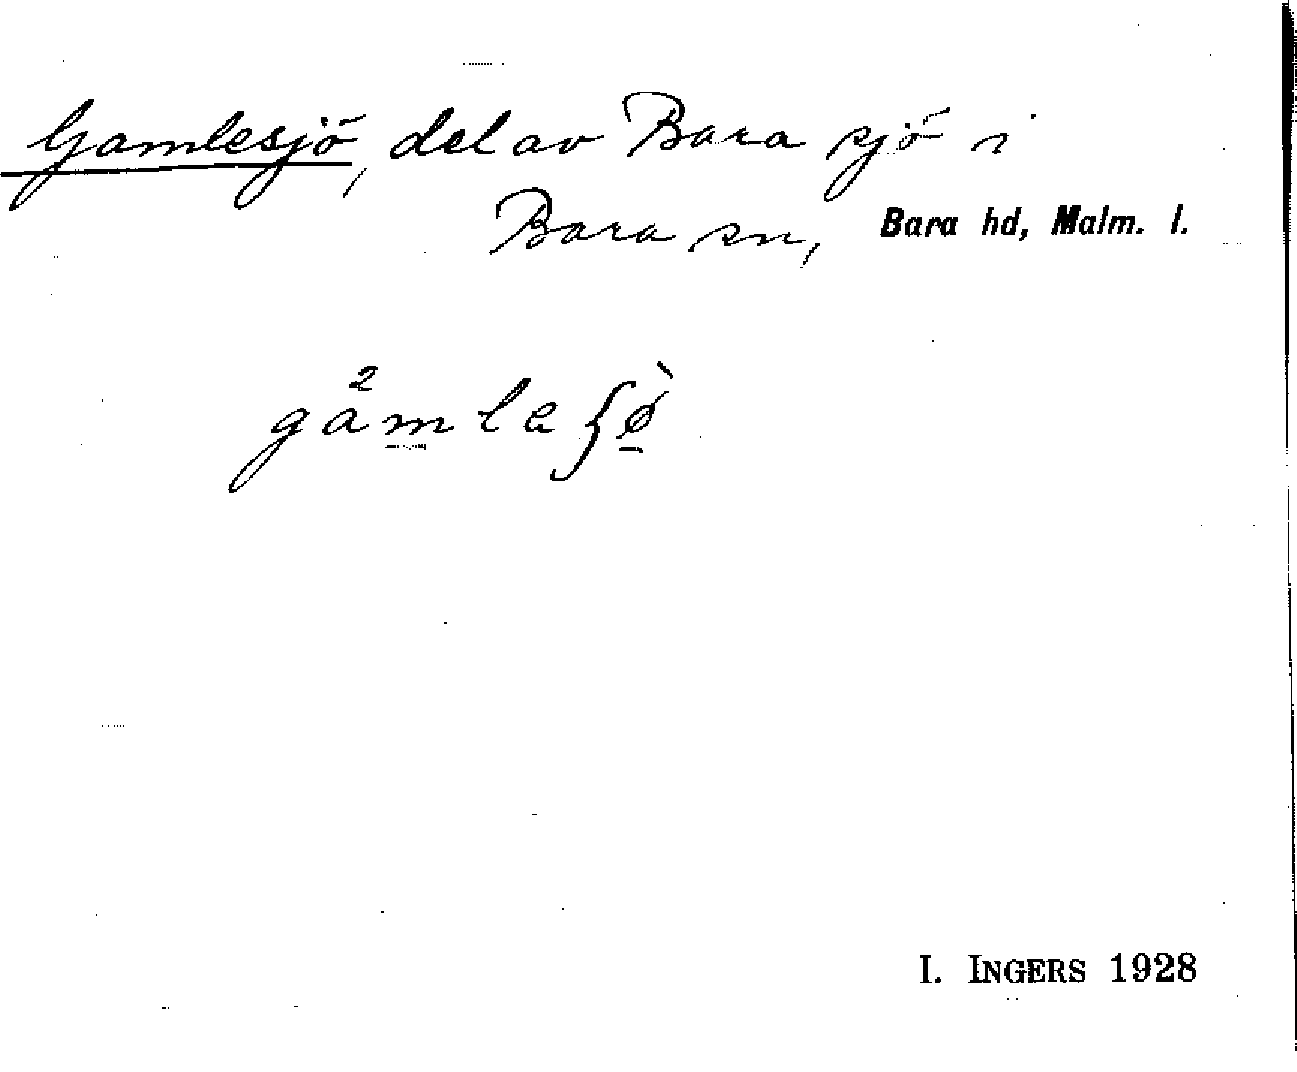 Gamlesjö, del av Bara sjö i
Bara sn, Bara hd, Malm. l.
gå²mleʃø̀
I. INGERS 1928